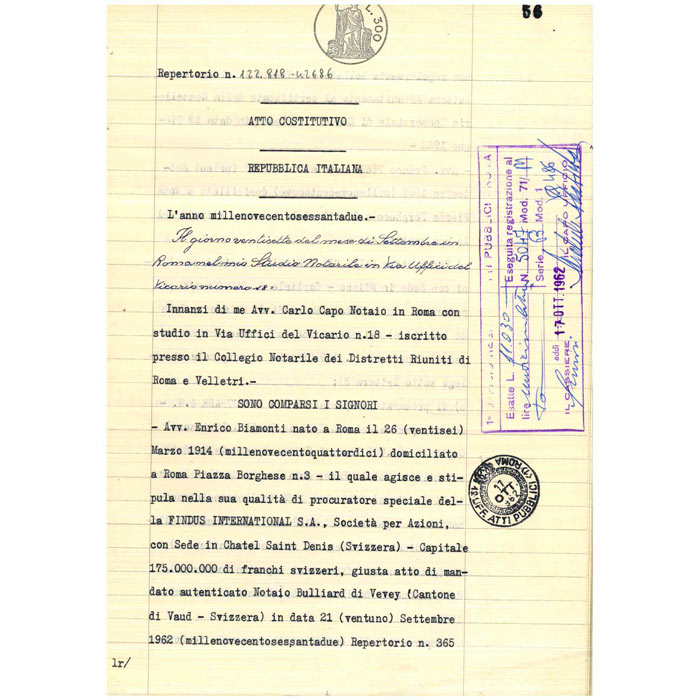 56
L. 300
Repertorio n. 122.818-42686
ATTO COSTITUTIVO
REPUBBLICA ITALIANA
L'anno millenovecentosessantadue.-
Il giorno ventisette del mese di Settembre in
Roma nel mio Studio Notarile in Via Uffici del
Vicario numero 18.-
Innanzi di me Avv. Carlo Capo Notaio in Roma con
studio in Via Uffici del Vicario n.18 - iscritto
presso il Collegio Notarile dei Distretti Riuniti di
Roma e Velletri.-
SONO COMPARSI I SIGNORI
- Avv. Enrico Biamonti nato a Roma il 26 (ventisei)
Marzo 1914 (millenovecentoquattordici) domiciliato
a Roma Piazza Borghese n.3 - il quale agisce e sti-
pula nella sua qualità di procuratore speciale del-
la FINDUS INTERNATIONAL S.A., Società per Azioni,
con Sede in Chatel Saint Denis (Svizzera) - Capitale
175.000.000 di franchi svizzeri, giusta atto di man-
dato autenticato Notaio Bulliard di Vevey (Cantone
di Vaud - Svizzera) in data 21 (ventuno) Settembre
1962 (millenovecentosessantadue) Repertorio n. 365
lr/
PUBBLICI
Esatte L. 11030
lire
addì 17 OTT. 1962
IL CASSIERE
Eseguita registrazione al
N. Mod. 71/M
Serie Mod. 1
IL CAPO UFFICIO
UFF. ATTI PUBBLICI (1) ROMA
17
OTT
62